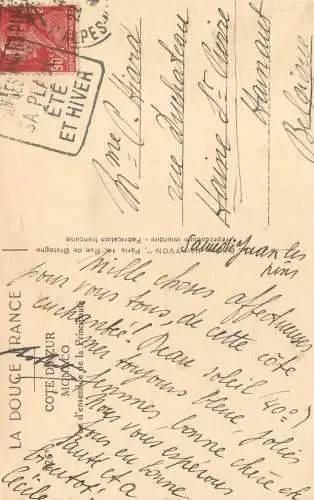 POSTES
90c
SA PL
ÉTÉ
ET HIVER
Mme P. Hiard
rue Duchateau
Haine St Pierre
Hainaut
Belgique
YVON", Paris 14, Rue de Bretagne
Reproduction interdite - Fabrication française
LA DOUCE FRANCE
COTE D'AZUR
MONACO
d'ensemble de la Principauté
Samedi Juan les
Pins
Mille choses affectueuses
pour vous tous, de cette côte
enchantée! Beau soleil (40°)
mer toujours bleue, jolies
femmes, bonne chère et
Nous vous espérons
tous en bonne
santé et à
bientôt
Cécile